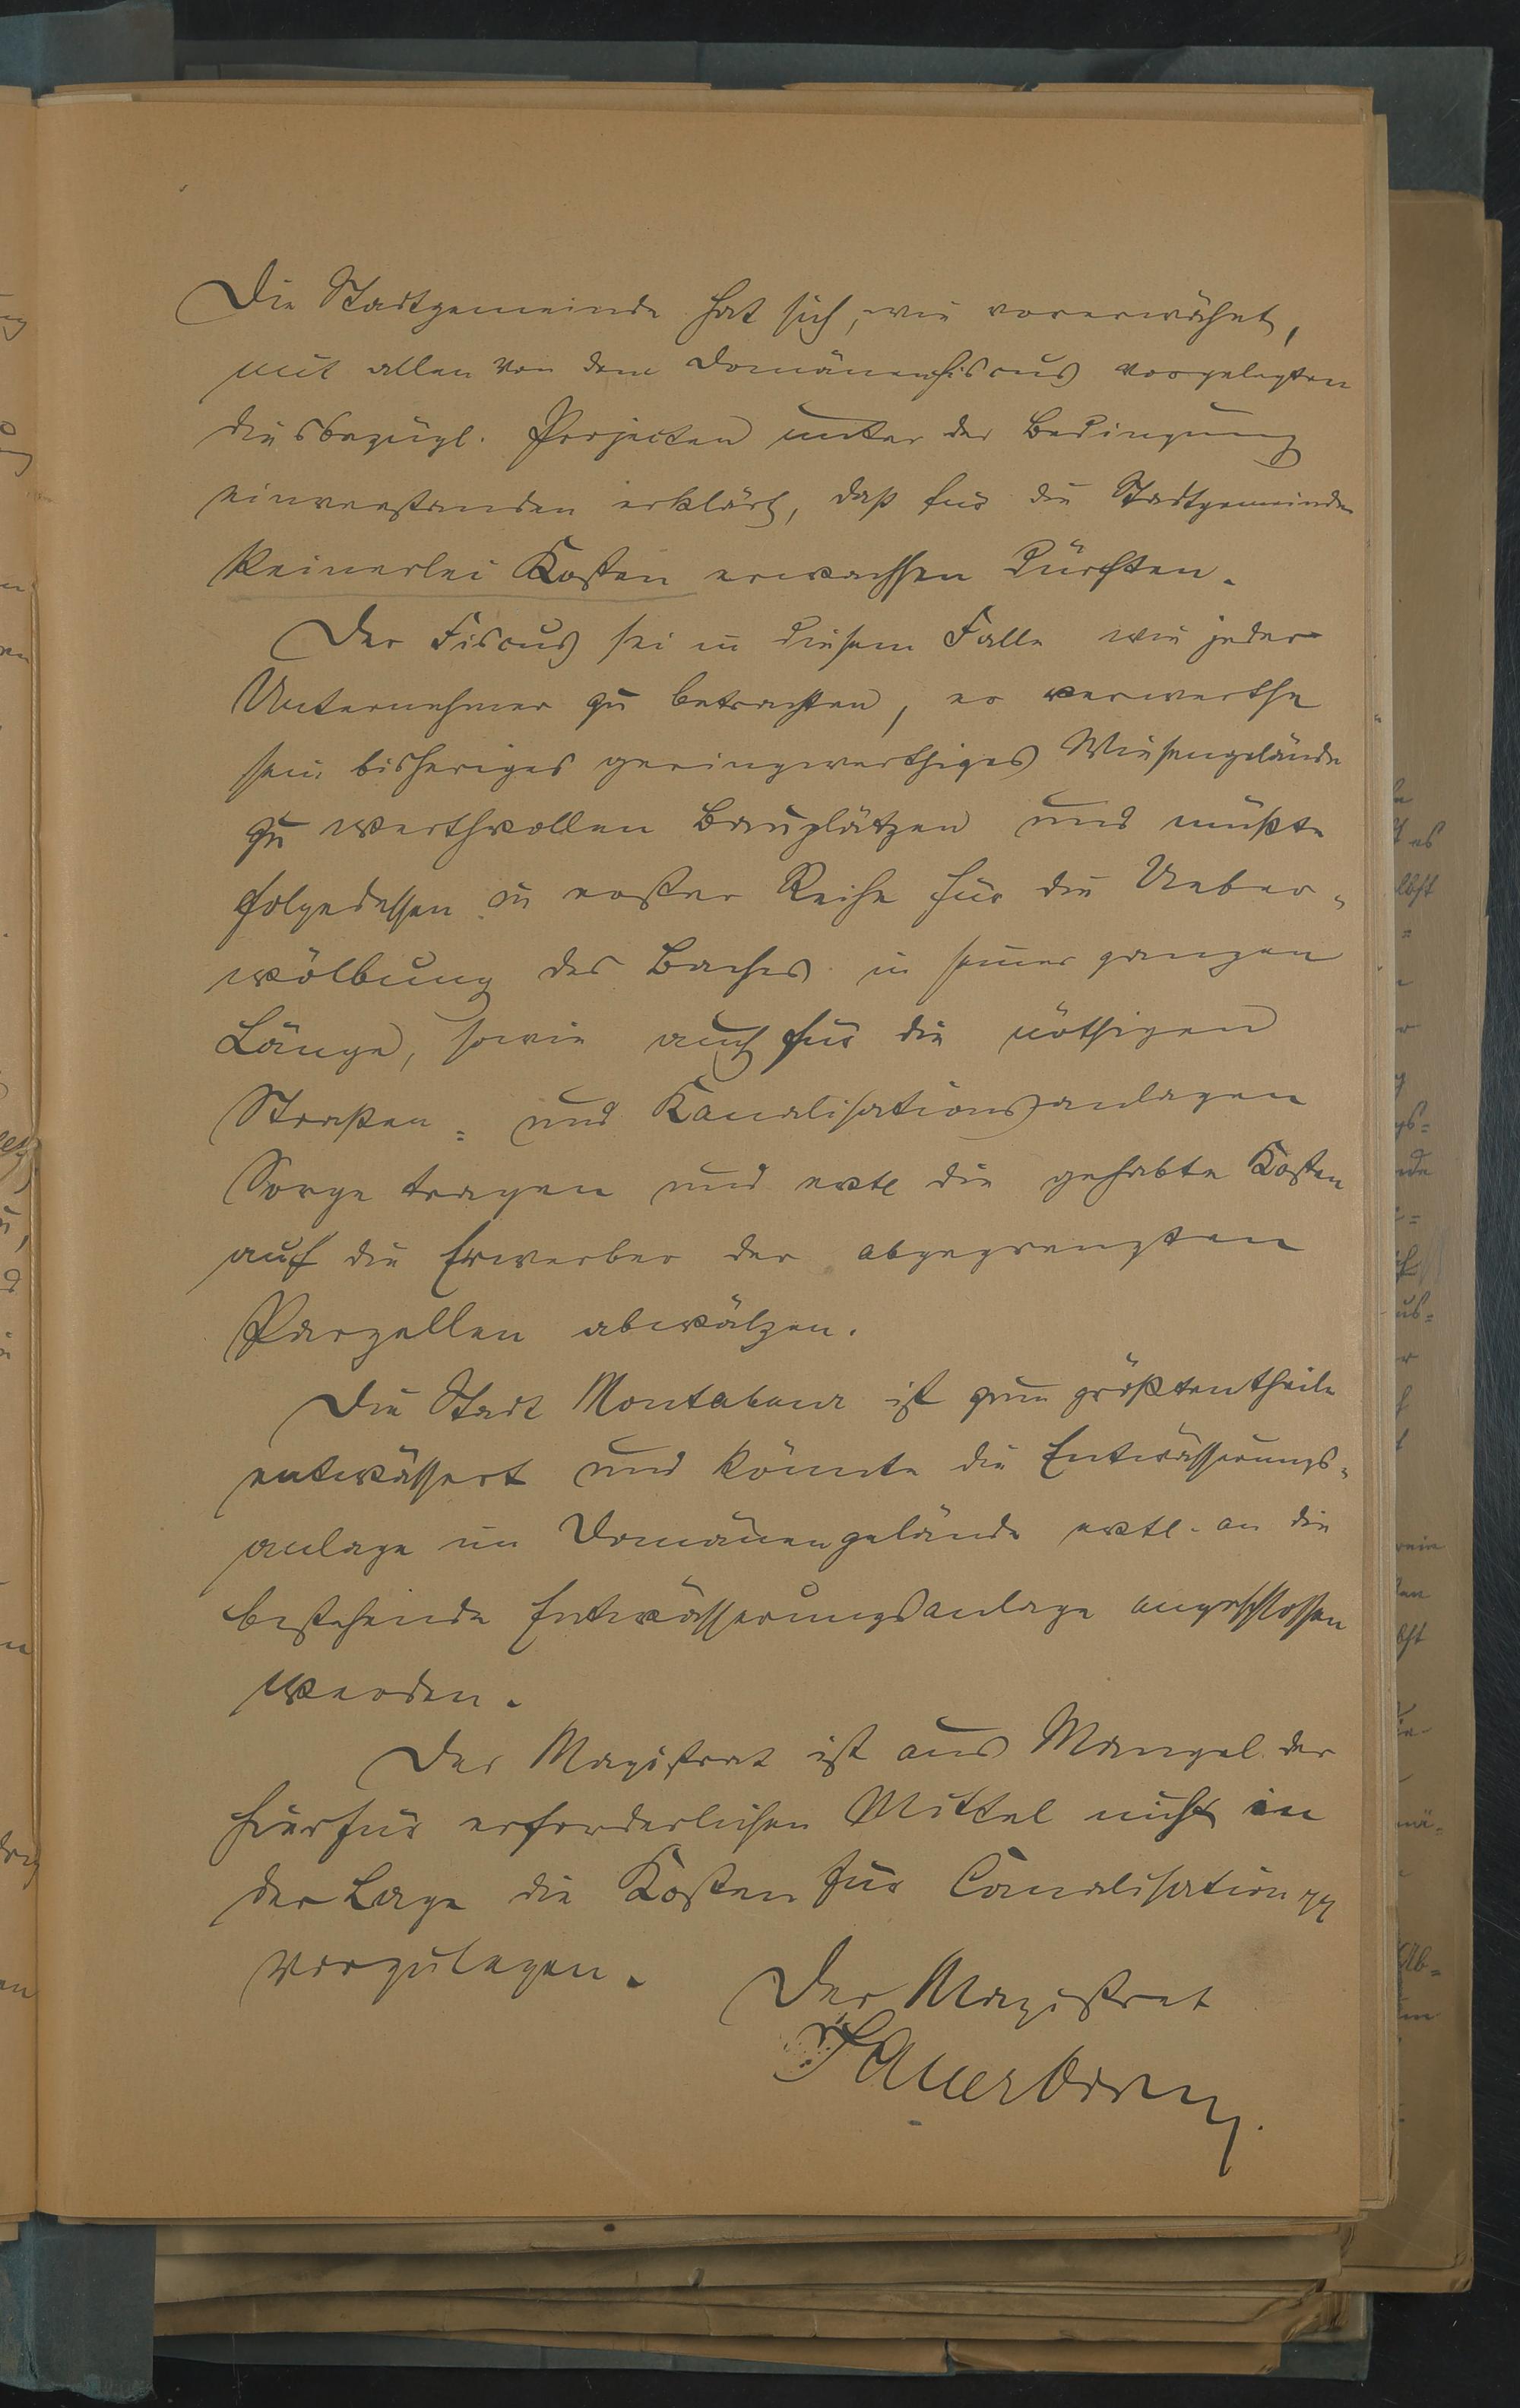 Die Stadtgemeinde hat sich, wie vorerwähnt,
mit allen von dem Domänenfiscus vorgelegten
diesbezügl. Projecten unter der Bedingung
einverstanden erklärt, daß für die Stadtgemeinde
keinerlei Kosten erwachsen dürften.
Der Fiscus sei in diesem Falle wie jeder
Unternehmer zu betrachten, er verwerthe
sein bisheriges geringwerthiges Wiesengelände
zu werthvollen Bauplätzen und müßte
folgedessen in erster Reihe für die Ueber-
wölbung des Baches in seiner ganzen
Länge, sowie auch für die nöthigen
Straßen- und Kanalisationsanlagen
Sorge tragen und evtl die gehabte Kosten
auf die Erwerber der abgegrenzten
Parzellen abwälzen.
Die Stadt Montabaur ist zum größtentheile
entwässert und könnte die Entwässerungs-
anlage im Domänengelände evtl. an die
bestehende Entwässerungsanlage angeschlossen
werden.
Der Magistrat ist aus Mangel der
hierfür erforderlichen Mittel nicht in
der Lage die Kosten für Canalisation pp
vorzulegen.
Der Magistrat
Sauerborn